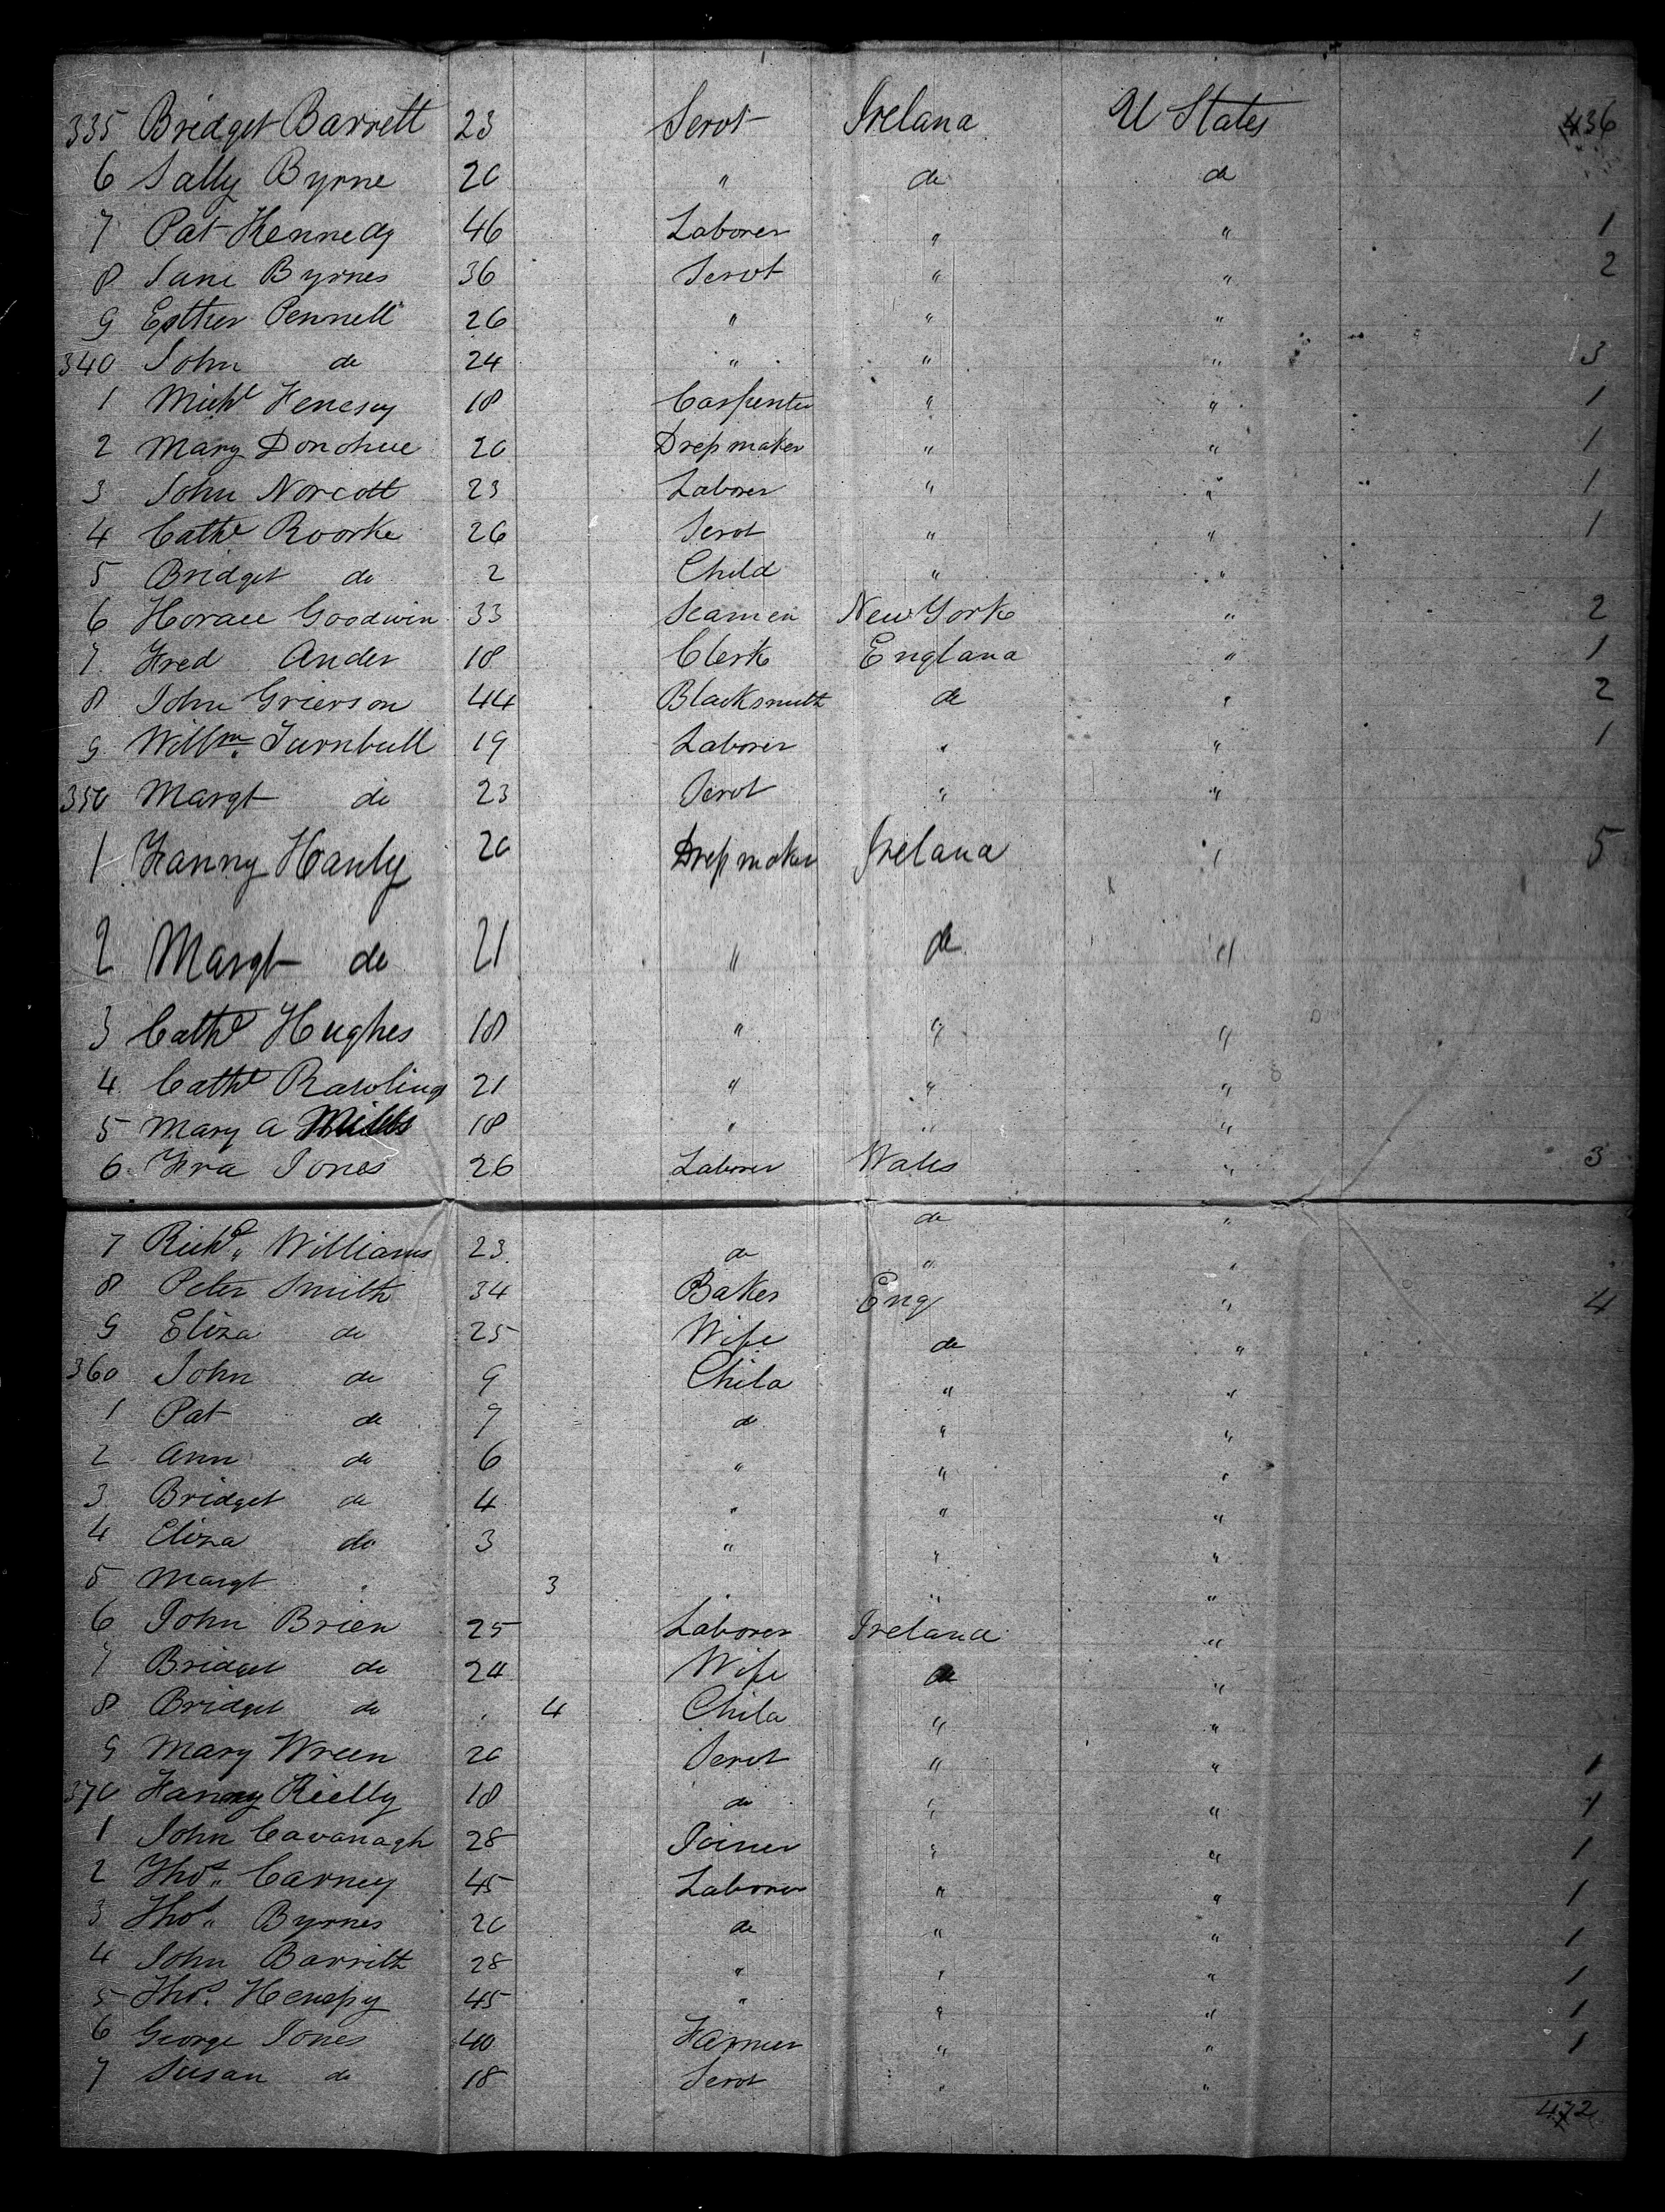 335 Bridget Barrett 23 Servt Ireland U States 436
6 Sally Byrne 20 " do do
7 Pat Kennedy 46 Laborer " " 1
8 Jane Byrnes 36 Servt " " 2
9 Esther Pennell 26 " " "
340 John do 24 " " " 3
1 Michl Henesey 18 Carpenter " " 1
2 Mary Donohue 20 Dressmaker " " 1
3 John Norcott 23 Laborer " " 1
4 Cathe Roorke 26 Servt " " 1
5 Bridget do 2 Child " "
6 Horace Goodwin 33 Seamen New York " 2
7 Fred Ander 18 Clerk England " 1
8 John Grierson 44 Blacksmith do " 2
9 Willm Turnbull 19 Laborer " " 1
350 Margt do 23 Servt " "
1 Fanny Hanly 20 Dressmaker Ireland " 5
2 Margt do 21 " do "
3 Cathe Hughes 18 " " "
4 Cathe Rawling 21 " " "
5 Mary A Mills 18 " " "
6 Fra Jones 26 Laborer Wales " 3
7 Richd Williams 23 do do "
8 Peter Smith 34 Baker Eng " 4
9 Eliza do 25 Wife do "
360 John do 9 Child " "
1 Pat do 7 do " "
2 Ann do 6 " " "
3 Bridget do 4 " " "
4 Eliza do 3 " " "
5 Margt " 3 " " "
6 John Brien 25 Laborer Ireland "
7 Bridget do 24 Wife do "
8 Bridget do 4 Child " "
9 Mary Wreen 20 Servt " " 1
370 Fanny Rielly 18 do " " 1
1 John Cavanagh 28 Joiner " " 1
2 Thos Carney 45 Laborer " " 1
3 Thos Byrnes 20 do " " 1
4 John Barrith 28 " " " 1
5 Thos Henessy 45 " " " 1
6 George Jones 40 Farmer " " 1
7 Susan do 18 Servt " "
472